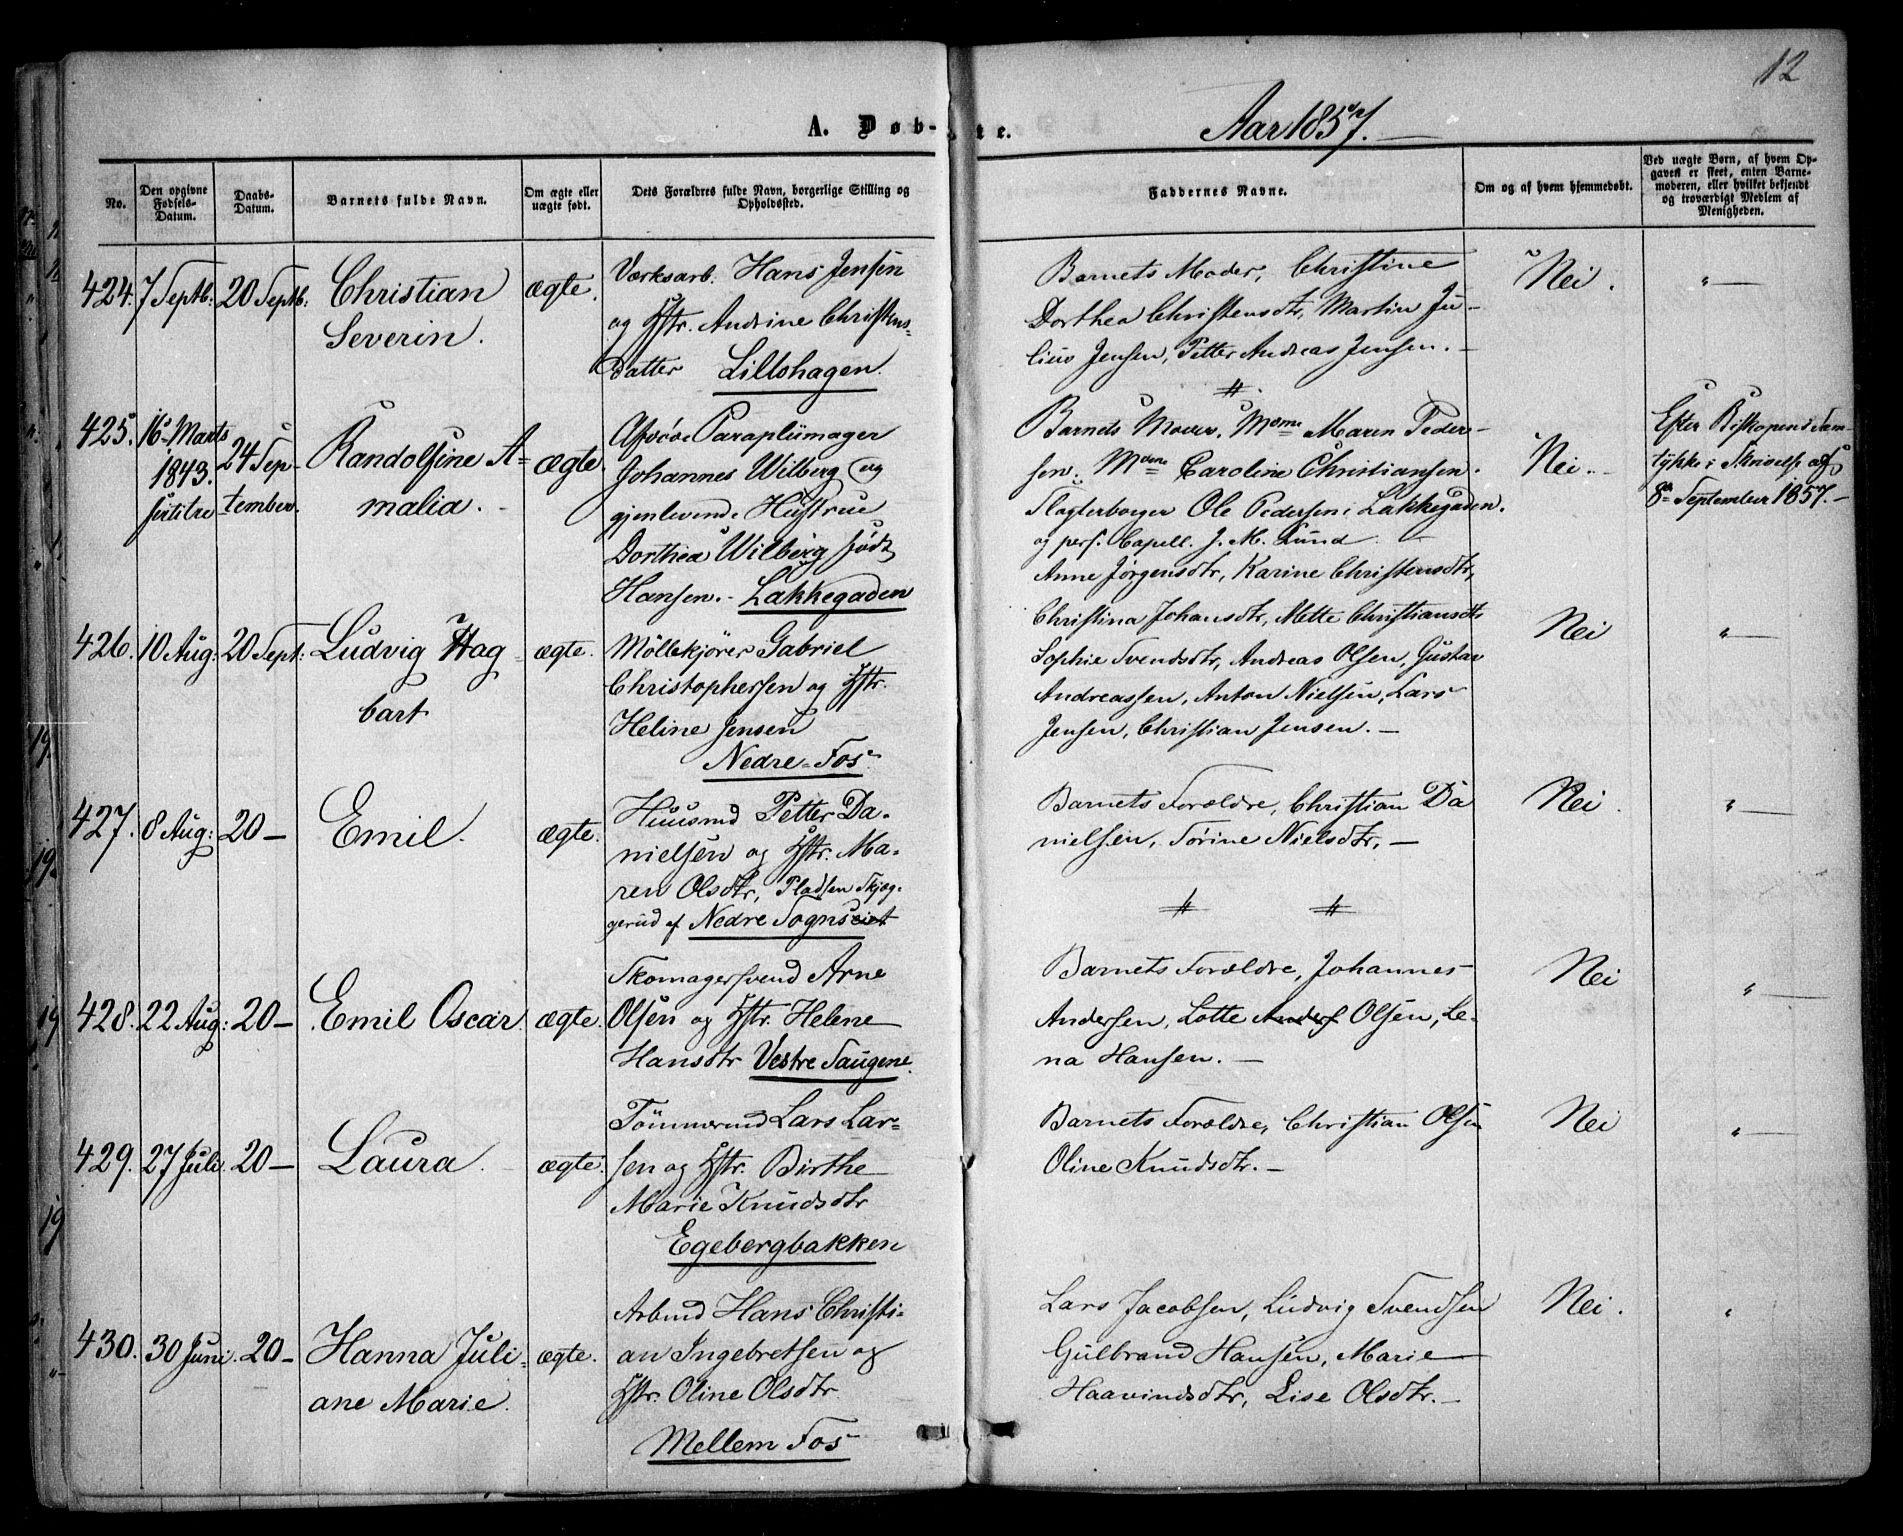 12
A. Døb-te.
Aar 1857.
No.
Den opgivne Fødsels-Datum.
Daabs-Datum.
Barnets fulde Navn.
Om ægte eller uægte født.
Dets Forældres fulde Navn, borgerlige Stilling og Opholdssted.
Faddernes Navne.
Om og af hvem hjemmedøbt.
Ved uægte Børn, af hvem Opgaven er skeet, enten Barnemoderen, eller hvilket bekjendt og troværdigt Medlem af Menigheden.
424. 7 Septb: 20 Septb: Christian Severin. ægte.
Værksarb. Hans Jensen
og Hstr. Andrine Christens-
datter Lillohagen.
Barnets Moder, Christine
Dorthea Christensdtr, Martin Ju-
lius Jensen, Petter Andreas Jensen. -
Nei. "
425. 16 Marts 1843. 24 Sep-tember. Randolfine A=malia. ægte.
Afdøde Paraplümager
Johannes Wilberg og
gjenlevende Hustrue
Dorthea Wilberg født
Hansen. - Lakkegaden
Barnets Moder. Mdme Maren Peder-
sen. Mdme Caroline Christiansen.
Slagterborger Ole Pedersen i Lakkegaden.
og pers. Capell. J. M. Lund.
Nei. -
Efter Biskopens Sam-
tykke i Skrivelse af
8de September 1857. -
426. 10 Aug: 20 Sept: Ludvig Hag-bart ægte.
Möllekjörer Gabriel
Christophersen og Hstr.
Heline Jensen
Nedre-Fos.
Anne Jørgensdtr, Karine Christensdtr,
Christina Johansdtr, Mette Christiansdtr
Sophie Svendsdtr, Andreas Olsen, Gustav
Andreassen, Anton Nielsen, Lars
Jensen, Christian Jensen. -
Nei "
427. 8 Aug: 20 - Emil. ægte.
Huusmd Petter Da-
nielsen og Hstr. Ma-
ren Olsdtr, Pladsen Skjæg-
gerud af Nedre Sogns
Barnets Forældre, Christian Da
nielsen, Sørine Nielsdtr. -
Nei. "
428. 22 Aug: 20 - Emil Oscar. ægte.
Skomagersvend Arne
Olsen og Hstr. Helene
Hansdtr Vestre Saugene.
Barnets Forældre, Johannes
Andersen, Lotte Anders Olsen, Le-
na Hansen. -
Nei "
429. 27 Juli. 20 - Laura. ægte.
Tömmermd Lars Lar-
sen og Hstr. Birthe
Marie Knudsdtr
Egebergbakken
Barnets Forældre, Christian Olsen
Oline Knudsdtr. -
Nei "
430. 30 Juni. 20 - Hanna Juli-ane Marie. ægte.
Arbmd Hans Christi-
an Ingebretsen og
Hstr. Oline Olsdtr
Mellem Fos
Lars Jacobsen, Ludvig Svendsen
Gulbrand Hansen, Marie
Haavindsdtr, Lise Olsdtr. -
Nei. "